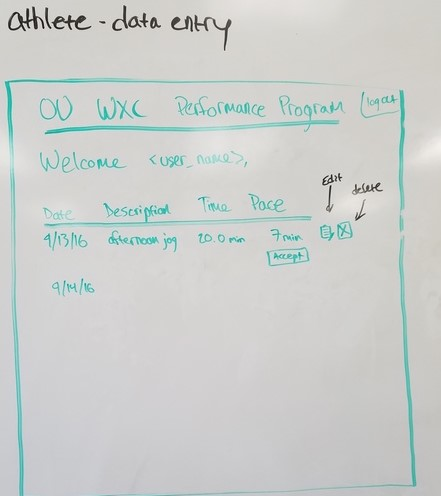 athlete - data entry
OU WXC Performance Program logout
Welcome <user_name>,
Edit
delete
Date Description Time Pace
9/13/16 afternoon jog 20.0 min 7 min
X
Accept
9/14/16